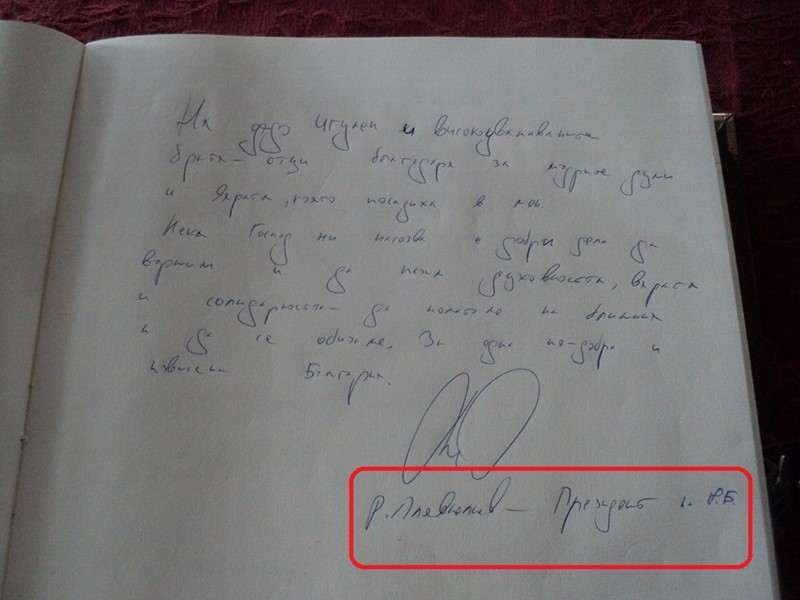 На дядо игумен и високоуважаемите
братя - отци благодаря за мъдрите думи
и вярата, която посадиха в мен.
Нека Господ ни насочва добри дела да
вършим и да пазим духовността, вярата
и солидарността - да помагаме на ближния
и да се обичаме. За една по-добра и
България.
Р. Плевнелиев - Президент н. Р.Б.